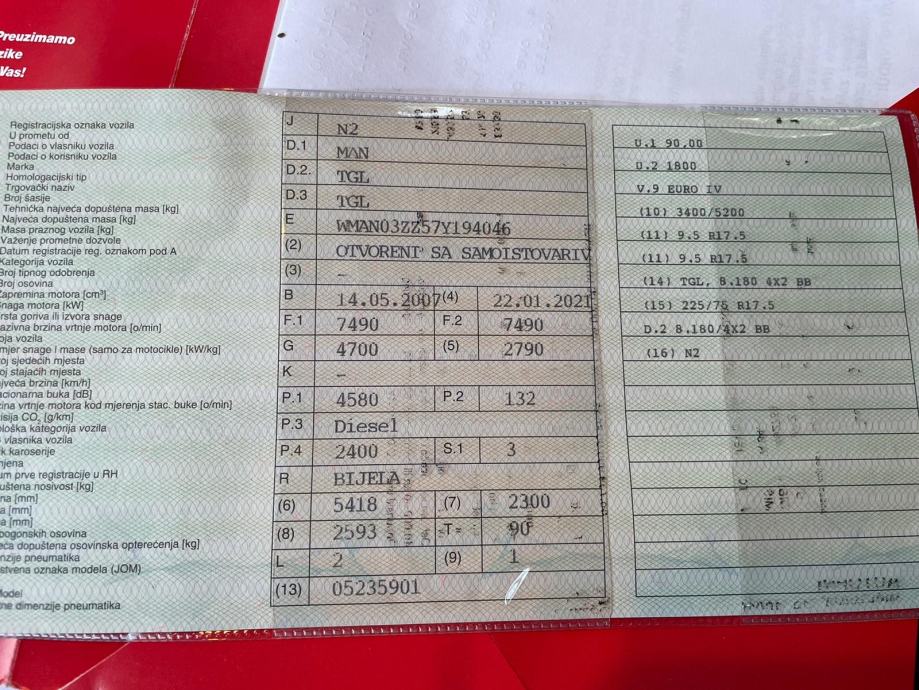 Preuzimamo
zike
Vas!
Registracijska oznaka vozila
U prometu od
Podaci o vlasniku vozila
Podaci o korisniku vozila
Marka
Homologacijski tip
Trgovački naziv
Broj šasije
Tehnička najveća dopuštena masa [kg]
Najveća dopuštena masa [kg]
Masa praznog vozila [kg]
Važenje prometne dozvole
Datum registracije reg. oznakom pod A
Kategorija vozila
Broj tipnog odobrenja
Broj osovina
Zapremina motora [cm³]
Snaga motora [kW]
rsta goriva ili izvora snage
azivna brzina vrtnje motora [o/min]
oja vozila
mjer snage i mase (samo za motocikle) [kW/kg]
oj sjedećih mjesta
oj stajaćih mjesta
jveća brzina [km/h]
acionarna buka [dB]
zina vrtnje motora kod mjerenja stac. buke [o/min]
isija CO₂ [g/km]
ološka kategorija vozila
vlasnika vozila
ik karoserije
njena
um prve registracije u RH
uštena nosivost [kg]
na [mm]
a [mm]
a [mm]
pogonskih osovina
eća dopuštena osovinska opterećenja [kg]
nzije pneumatika
stvena oznaka modela (JOM)
Model
ne dimenzije pneumatika
J N2
D.1 MAN
D.2. TGL
D.3 TGL
E WMAN03ZZ57Y194046
(2) OTVORENI SA SAMOISTOVARIV
(3) –
B 14.05.2007 (4) 22.01.2021
F.1 7490 F.2 7490
G 4700 (5) 2790
K –
P.1 4580 P.2 132
P.3 Diesel
P.4 2400 S.1 3
R BIJELA
(6) 5418 (7) 2300
(8) 2593 T 90
L 2 (9) 1
(13) 05235901
U.1 90,00
U.2 1800
V.9 EURO IV
(10) 3400/5200
(11) 9.5 R17.5
(11) 9.5 R17.5
(14) TGL, 8.180 4X2 BB
(15) 225/75 R17.5
D.2 8.180/4X2 BB
(16) N2